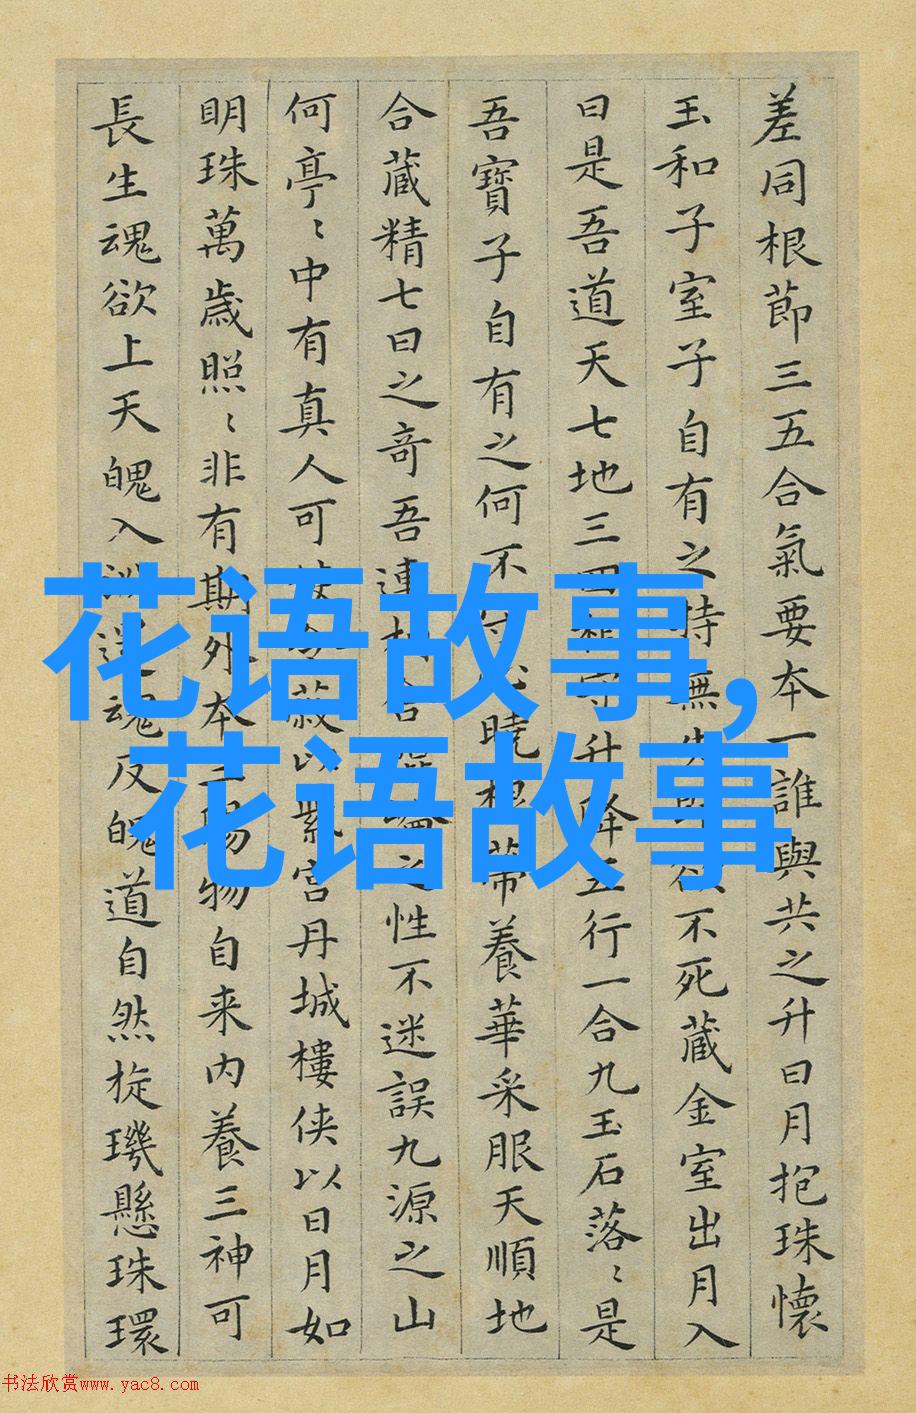 花语故事,
花语故事
差同根節三五合氣要本一誰與共之升日月抱珠懷
玉和子室子自有之持無失即欲不死藏金室出月入
日是吾道天七地三回相守升降五行一合九玉石落〻是
吾寶子自有之何不守心曉根蒂養華采服天順地
合藏精七日之奇吾連相合之性不迷誤九源之山
何亭〻中有真人可使令蔽以紫宮丹城樓俠以日月如
明珠萬歲照〻非有期外本三陽物自来内養三神可
長生魂欲上天魄入淵還魂反魄道自然旋璣懸珠環
书法欣赏www.yac8.com